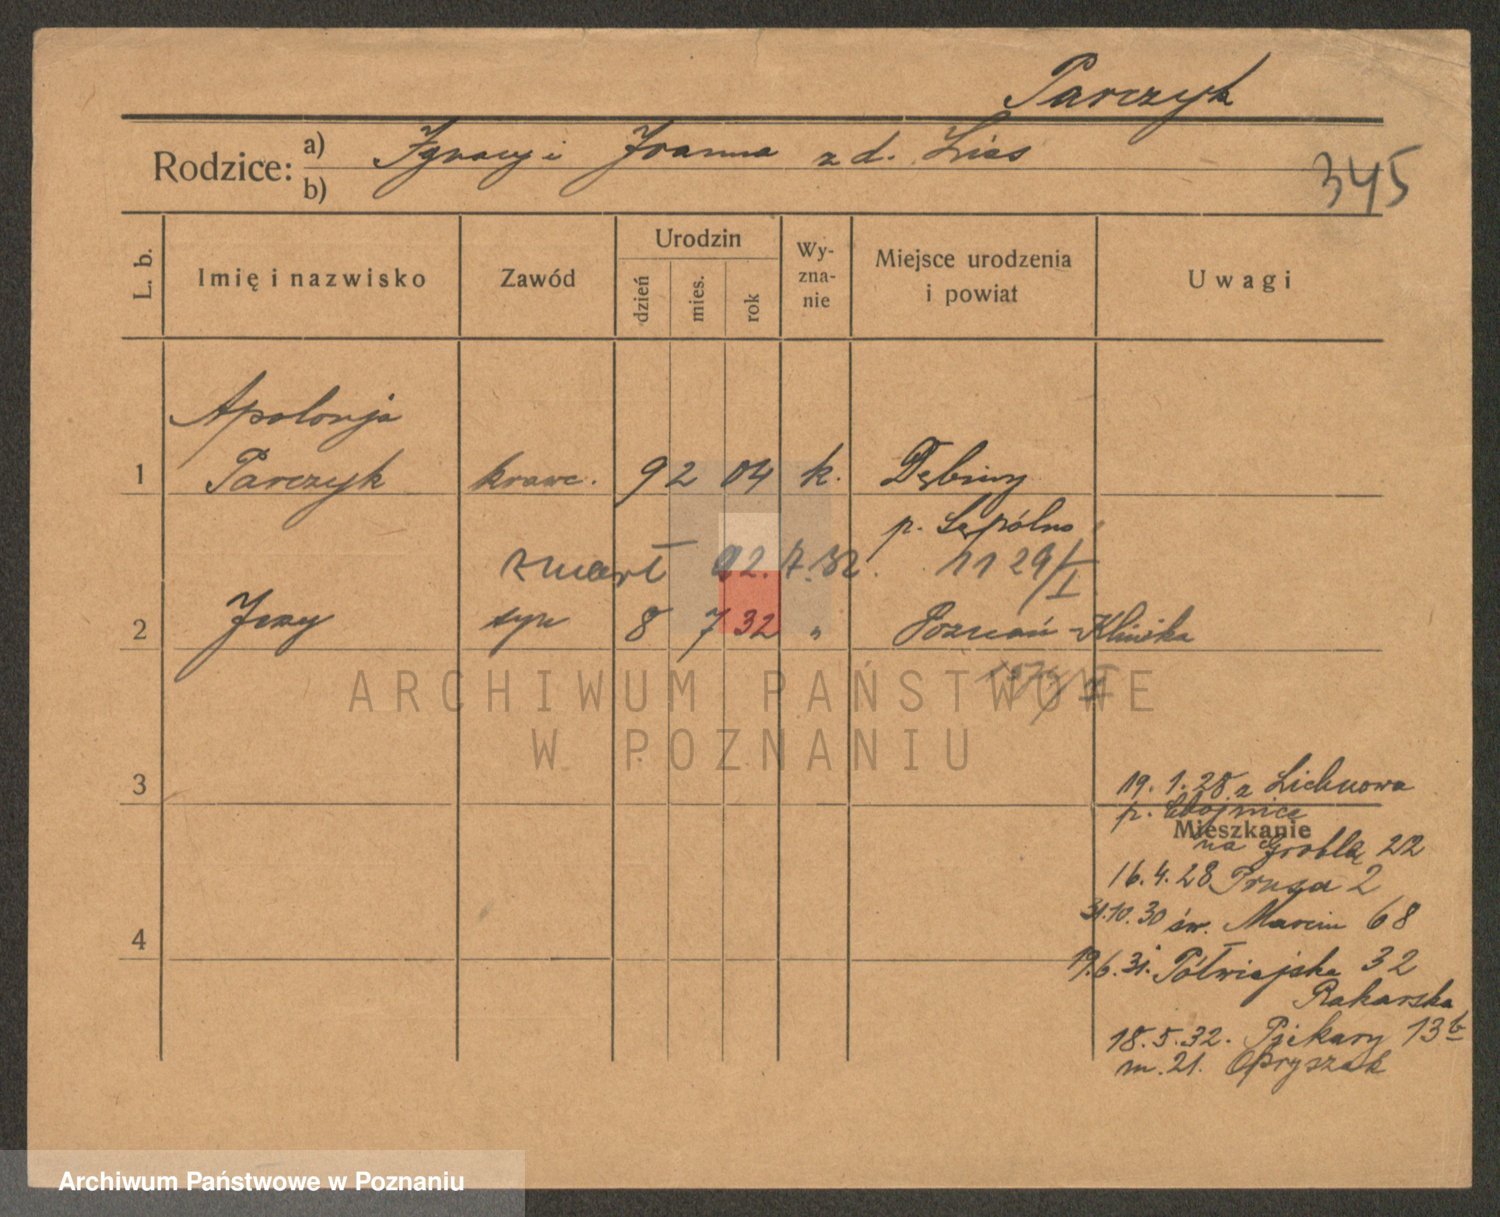 Parczyk
Rodzice: a) Ignacy i Joanna z d. Lias
b)
345
L. b.
Imię i nazwisko
Zawód
Urodzin
dzień
mies.
rok
Wy-
zna-
nie
Miejsce urodzenia
i powiat
Uwagi
Apolonja
1 Parczyk krawc. 9 2 04 k. Dębiny
p. Sępólno
zmarł 22.7.32. 11 29/I
2 Jerzy syn 8 7 32 " Poznań - Klinika
ARCHIWUM PAŃSTWOWE
W POZNANIU
3
19.1.28 z Lichnowa
p. Chojnice
Mieszkanie
na Groblą 22
16.4.28 2
31.10.30 św. Marcin 68
4
19.6.31. Półwiejska 32
Rakarska
18.5.32. Piekary 13b
m.21. Opryszak
Archiwum Państwowe w Poznaniu